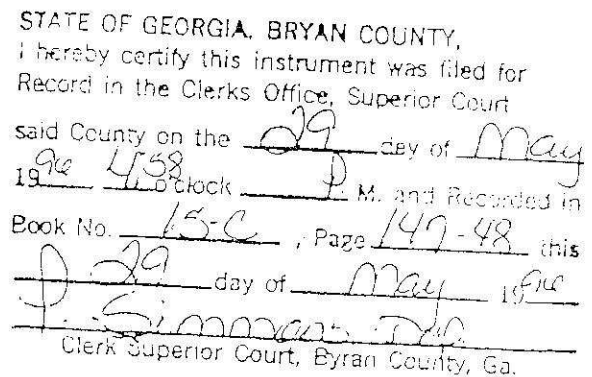 STATE OF GEORGIA, BRYAN COUNTY,
I hereby certify this instrument was filed for
Record in the Clerks Office, Superior Court
said County on the 29 day of May
1996 4:58 o'clock P. M. and Recorded in
Book No. 15-C, Page 147-48 this
29 day of May 1996
P. Simmons Dep.
Clerk Superior Court, Byran County, Ga.